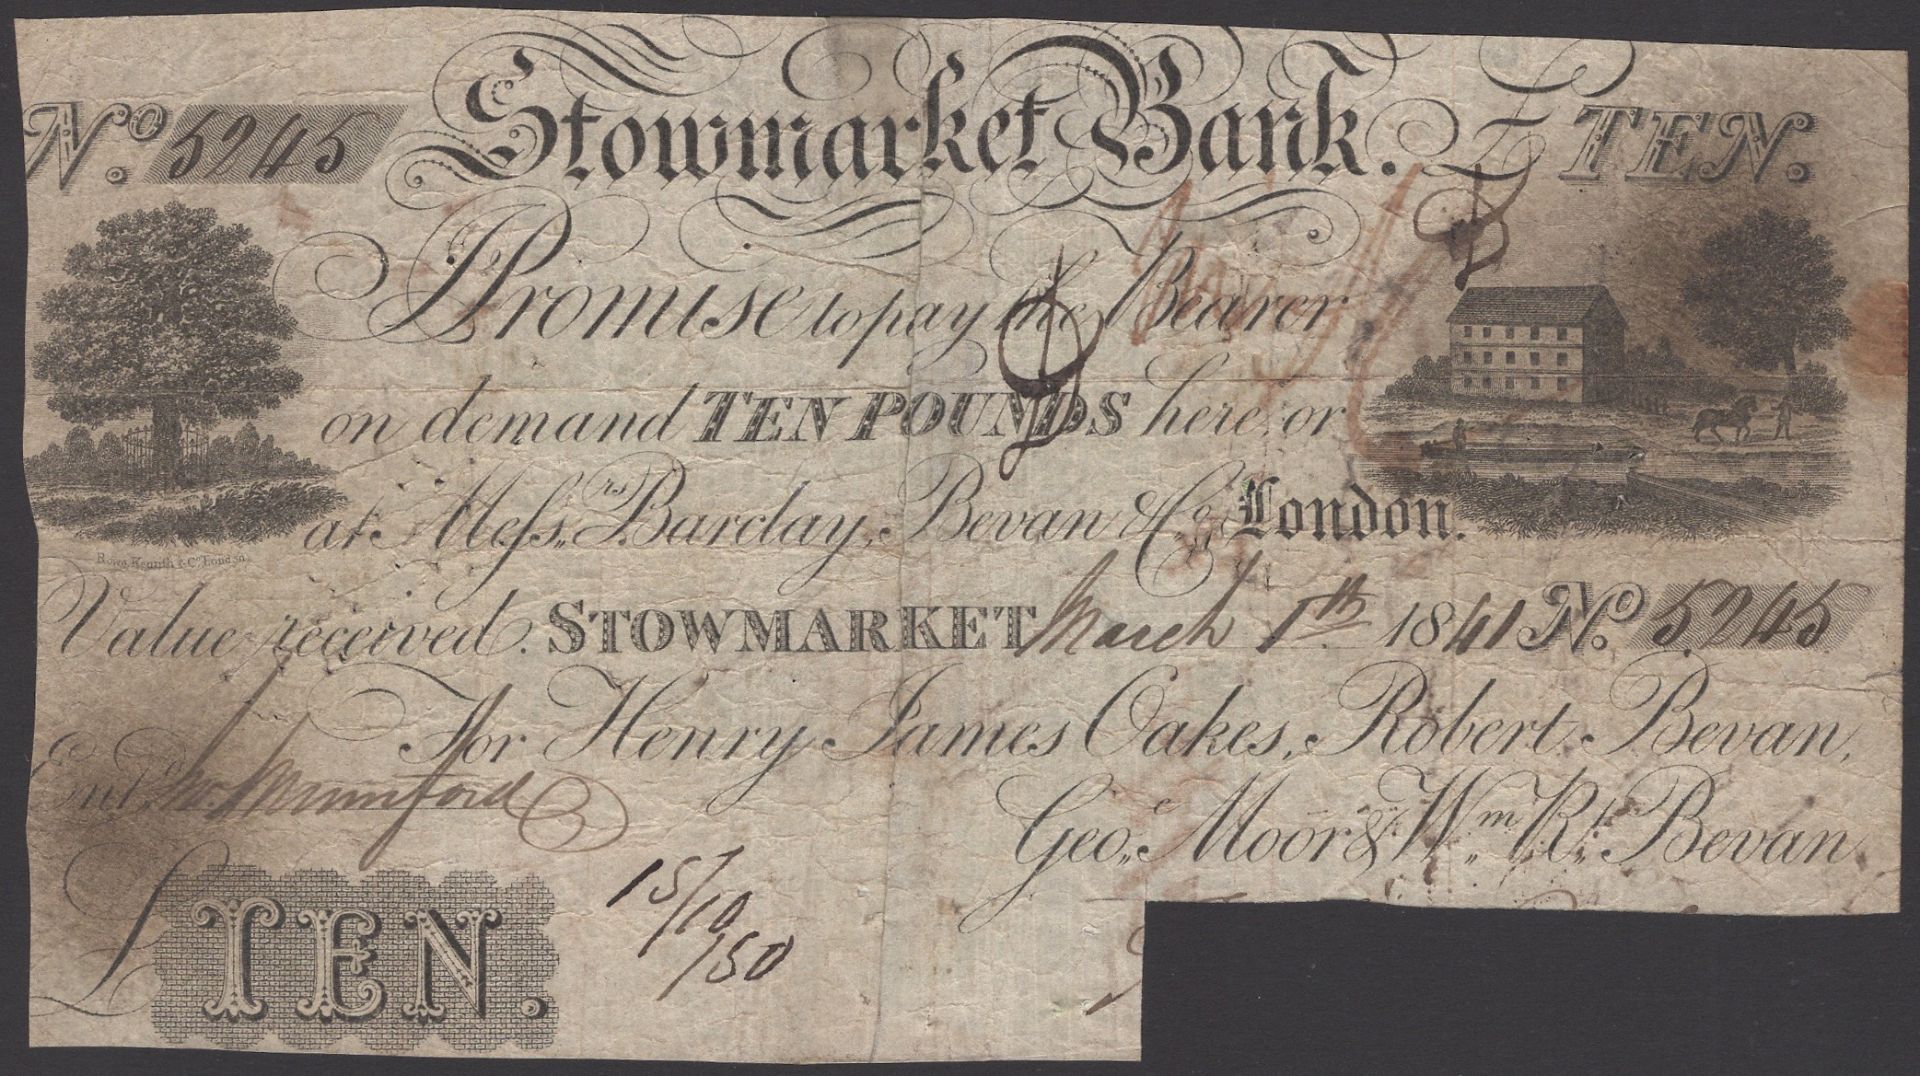 No. 5245 Stowmarket Bank. £ TEN.
I Promise to pay the Bearer
on demand TEN POUNDS here, or
at Messrs. Barclay, Bevan & Co. London.
Value received. STOWMARKET March 1th 1841 No. 5245
For Henry James Oakes, Robert Bevan,
Entd. Mumford
Geo. Moor & Wm. Rt. Bevan.
£ TEN.
15/10/50